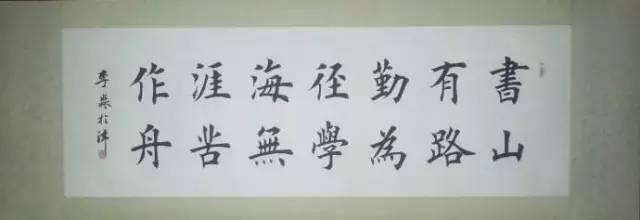 書山
有路
勤為
径學
海無
涯苦
作舟
李於津